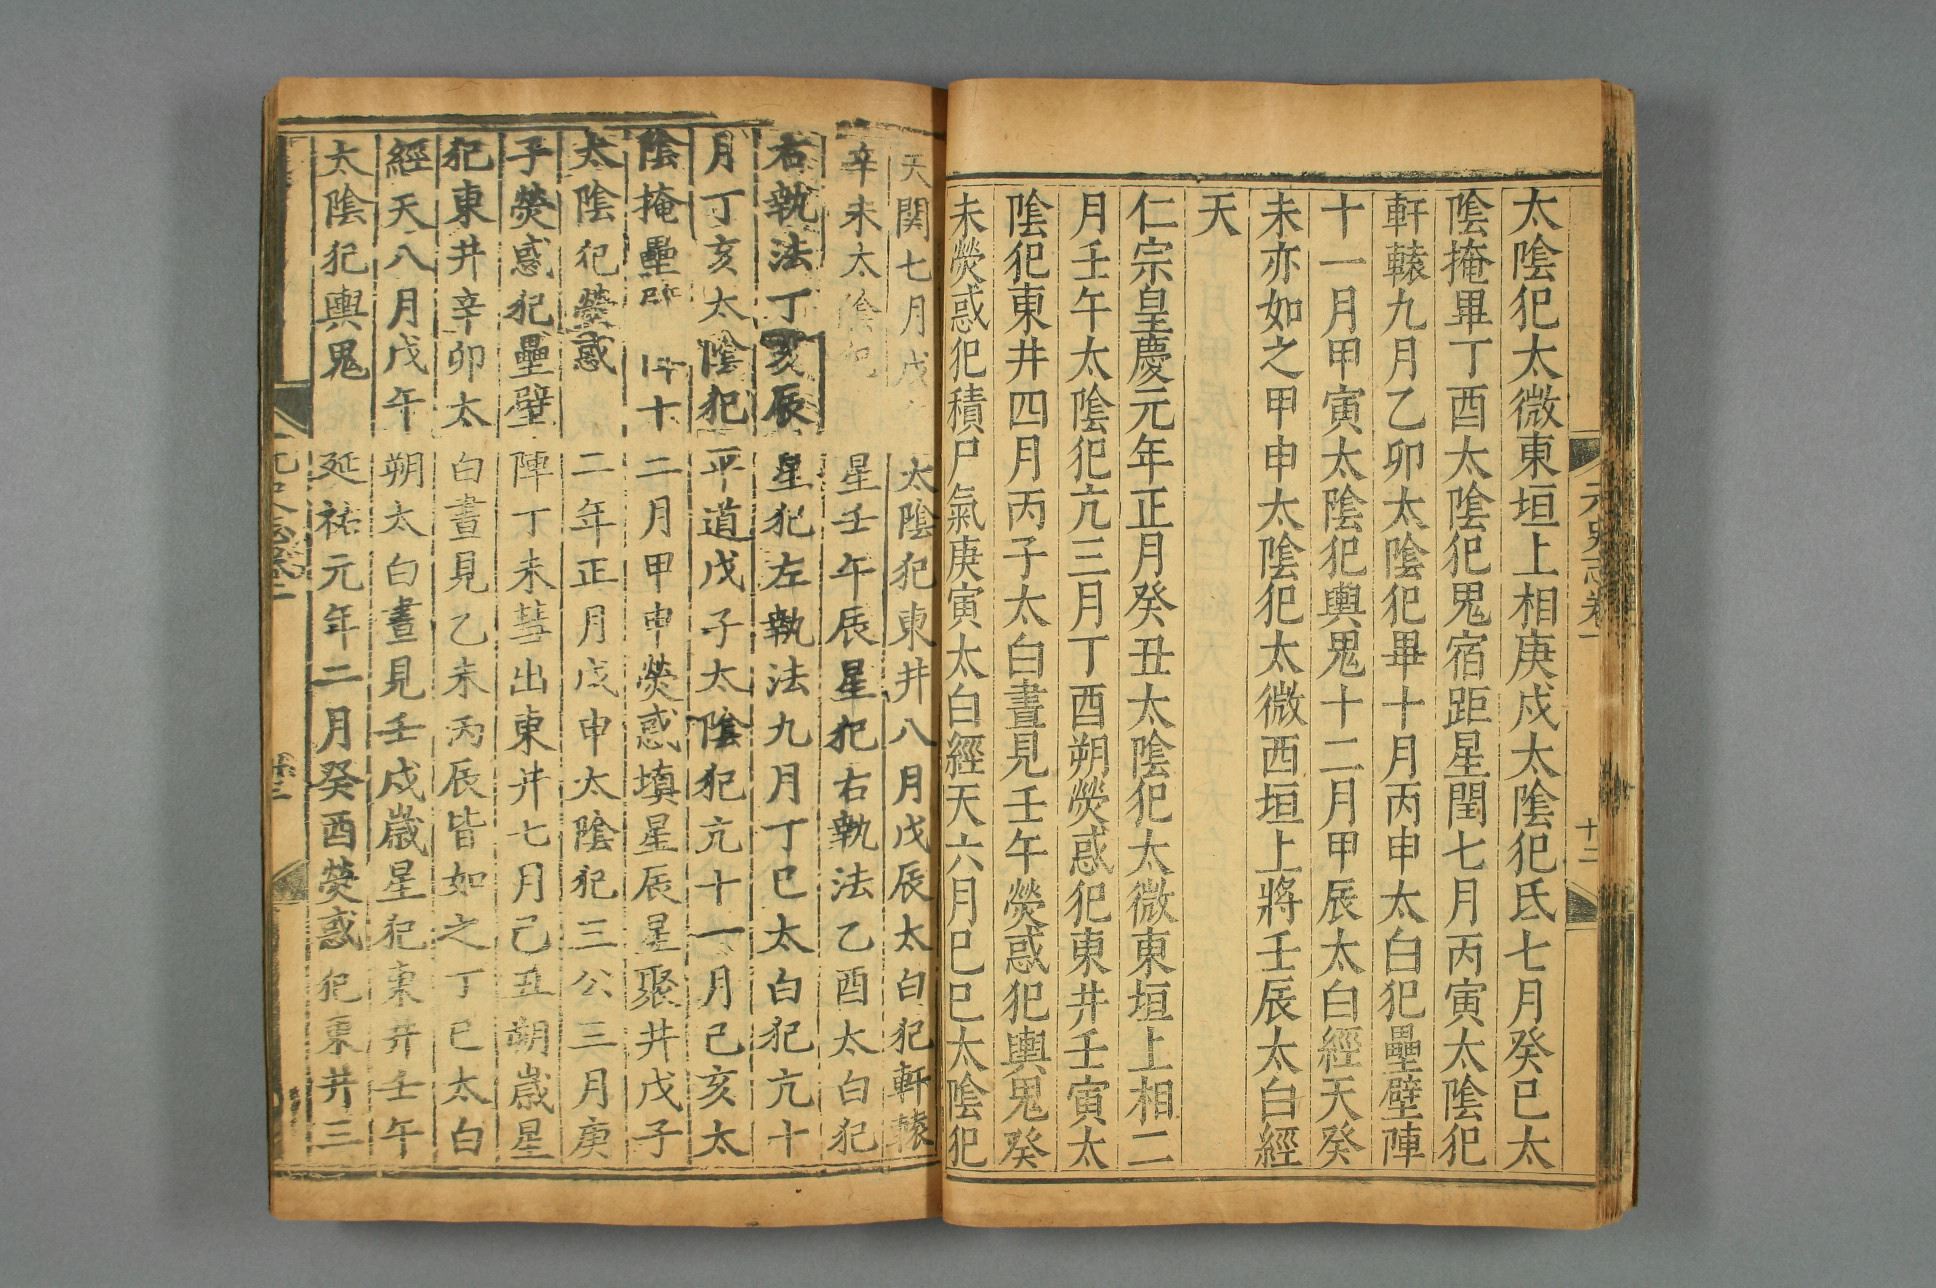 太陰犯太微東垣上相庚戌太陰犯氐七月癸巳太
陰掩畢丁酉太陰犯鬼宿距星閏七月丙寅太陰犯
軒轅九月乙卯太陰犯畢十月丙申太白犯壘壁陣
十一月甲寅太陰犯輿鬼十二月甲辰太白經天癸
未亦如之甲申太陰犯太微西垣上將壬辰太白經
天
仁宗皇慶元年正月癸丑太陰犯太微東垣上相二
月壬午太陰犯亢三月丁酉朔熒惑犯東井壬寅太
陰犯東井四月丙子太白晝見壬午熒惑犯輿鬼癸
未熒惑犯積尸氣庚寅太白經天六月己巳太陰犯
天關七月戊 太陰犯東井八月戊辰太白犯軒轅
辛未太陰犯 星壬午辰星犯右執法乙酉太白犯
右執法丁亥辰星犯左執法九月丁巳太白犯亢十
月丁亥太陰犯平道戊子太陰犯亢十一月己亥太
陰掩壘 十二月甲申熒惑填星辰星聚井戊子
太陰犯熒惑二年正月戊申太陰犯三公三月庚
子熒惑犯壘壁陣丁未彗出東井七月己丑朔歲星
犯東井辛卯太白晝見乙未丙辰皆如之丁巳太白
經天八月戊午朔太白晝見壬戌歲星犯東井壬午
太陰犯輿鬼延祐元年二月癸酉熒惑犯東井三
元史志卷一
十二